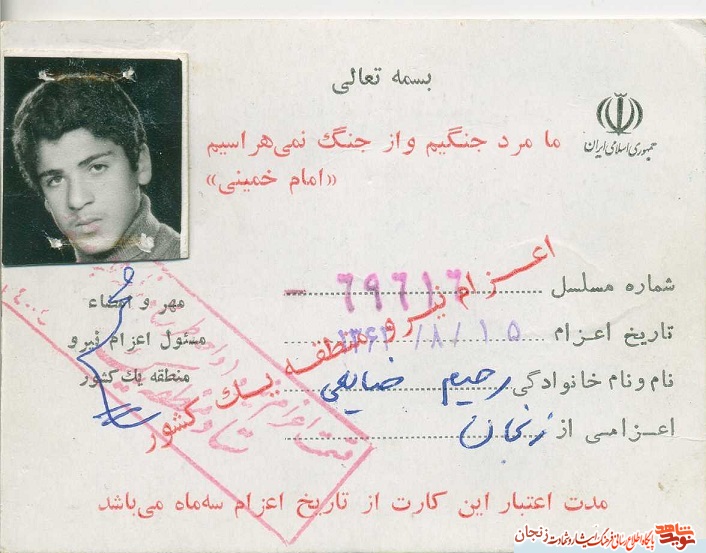 بسمه تعالی
جمهوری اسلامی ایران
ما مرد جنگیم و از جنگ نمی‌هراسیم
«امام خمینی»
اعزام نیرو منطقه یک کشور
شماره مسلسل ۶۹۶۱۶
تاریخ اعزام ۱۵ /۸/ ۱۳۶۲
نام و نام خانوادگی رحیم ضیایی
اعزامی از زنجان
مهر و امضاء
مسئول اعزام نیرو
منطقه یك کشور
مدت اعتبار این کارت از تاریخ اعزام سه‌ماه می‌باشد
نوید شاهد
پایگاه اطلاع رسانی فرهنگ ایثار و شهادت زنجان